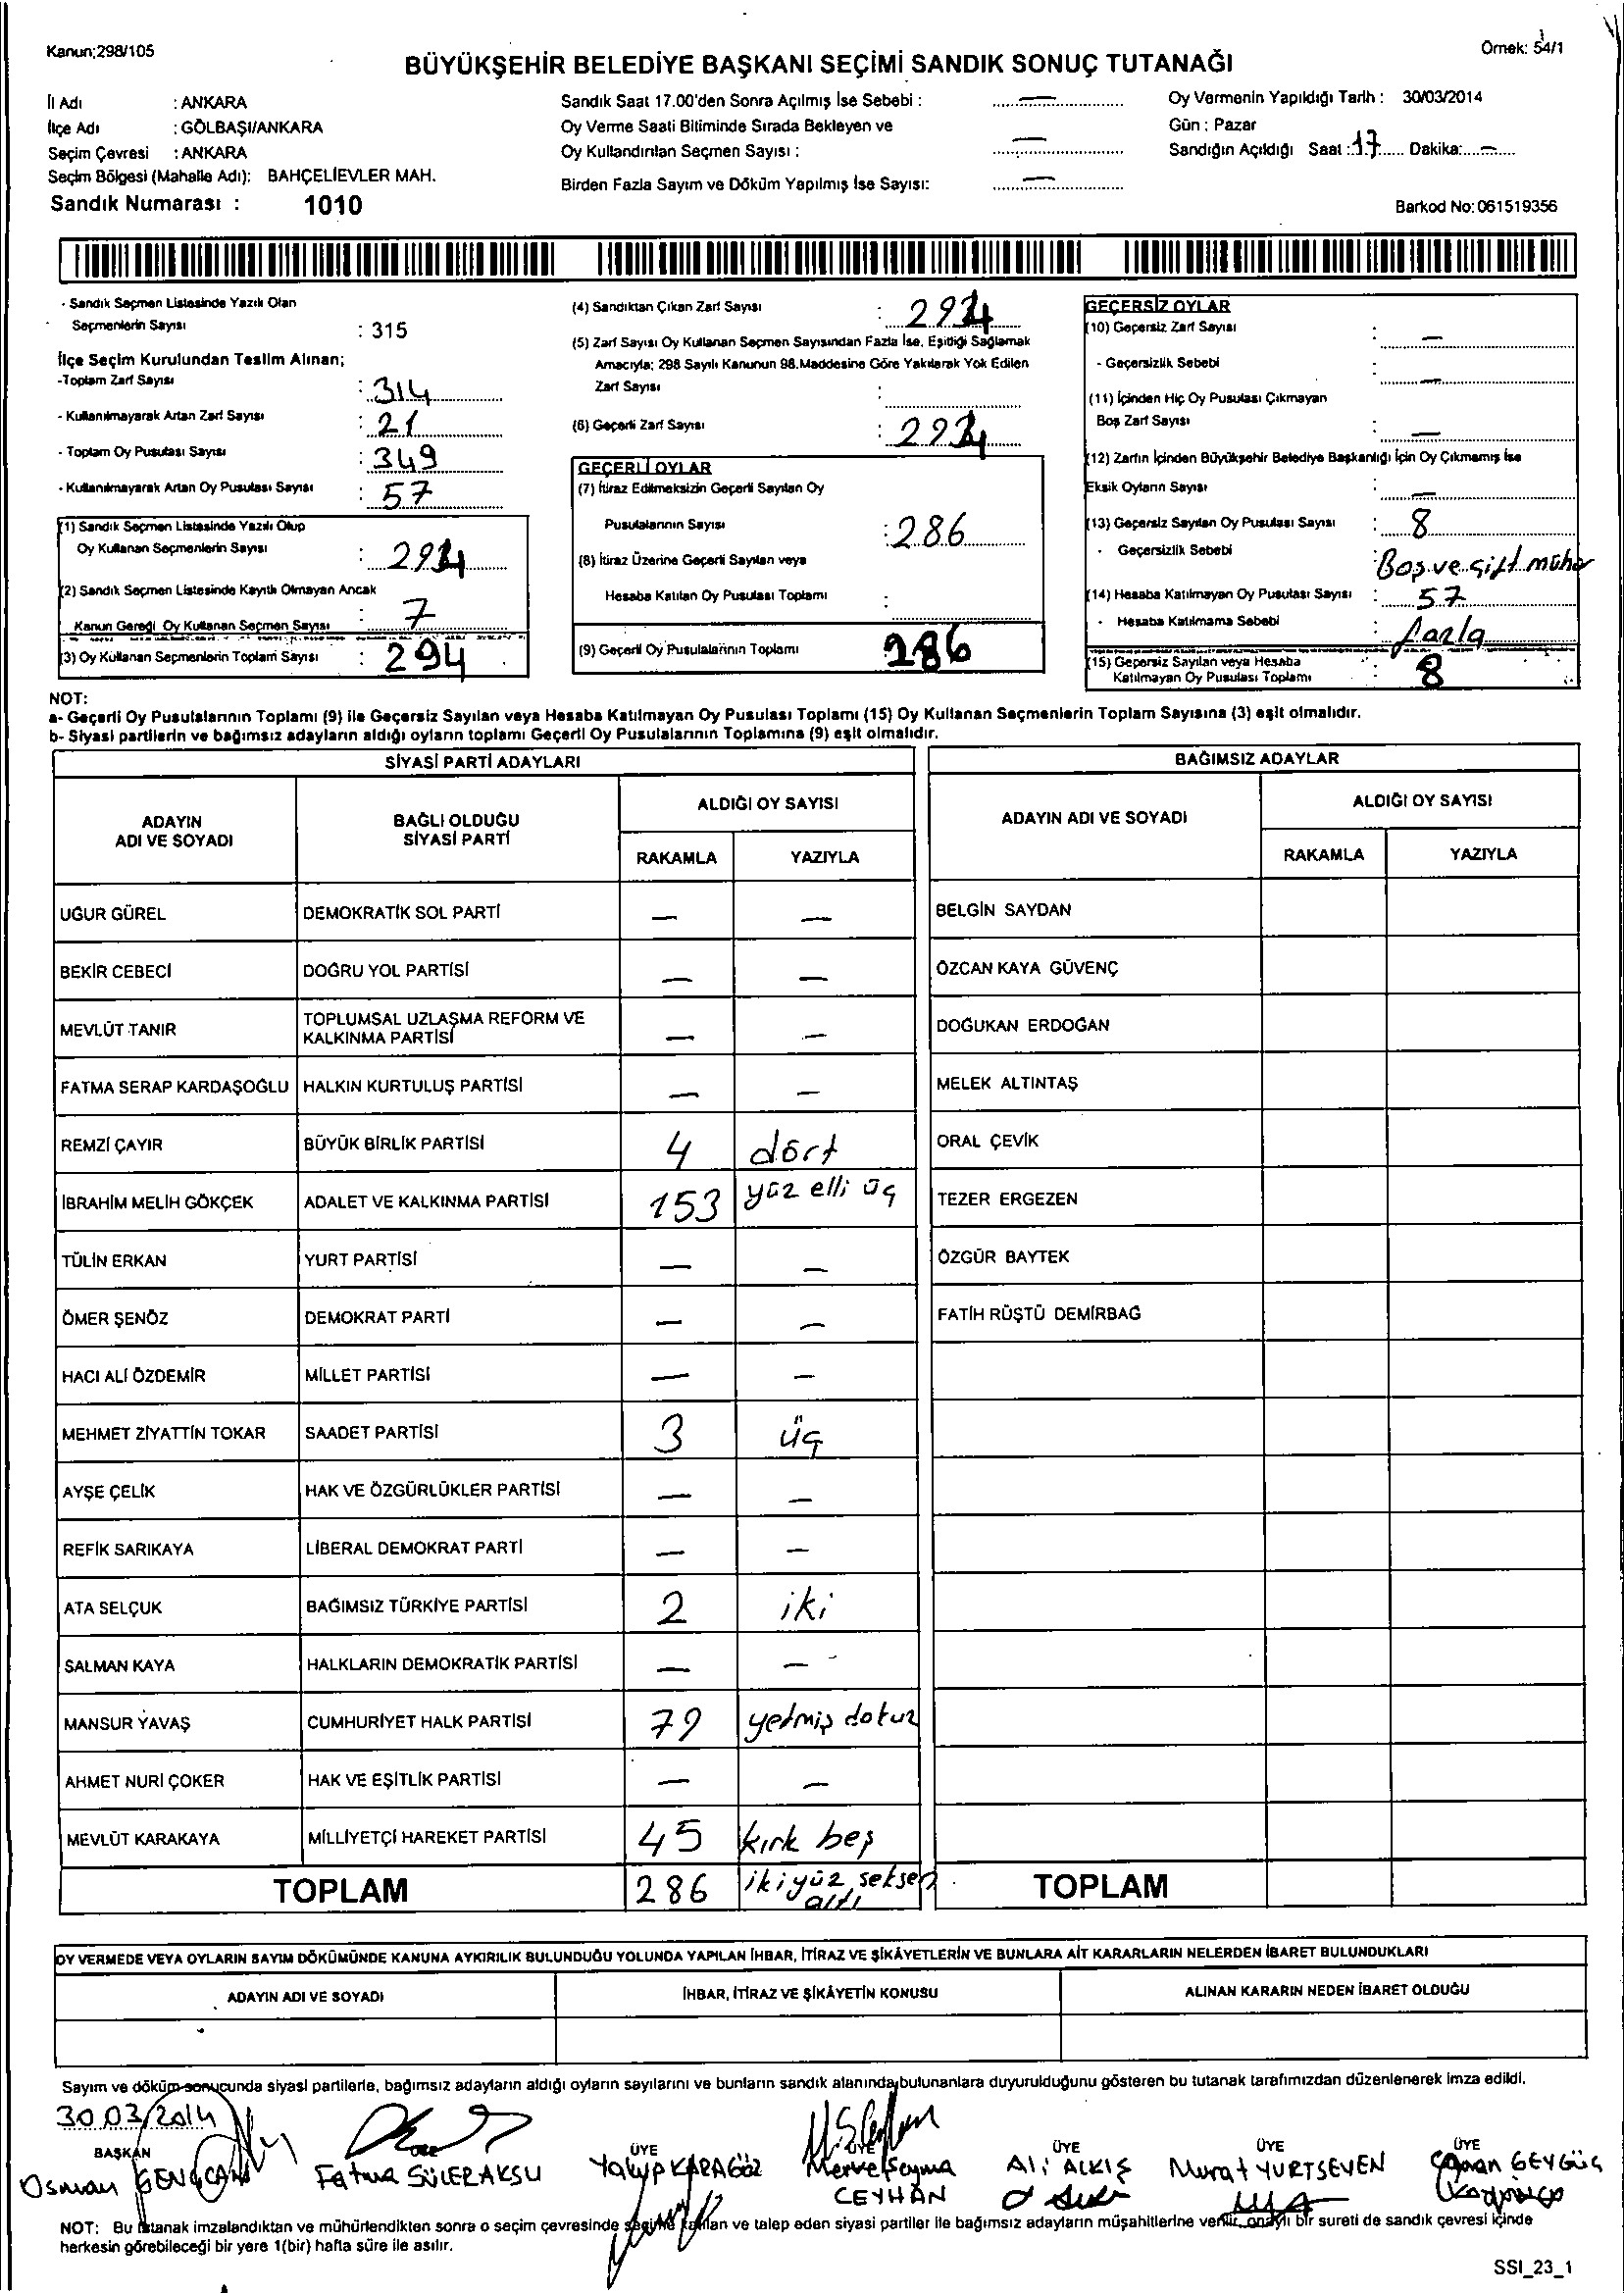 Kanun;298/105
Örnek: 54/1
BÜYÜKŞEHİR BELEDİYE BAŞKANI SEÇİMİ SANDIK SONUÇ TUTANAĞI
İl Adı : ANKARA
İlçe Adı : GÖLBAŞI/ANKARA
Seçim Çevresi : ANKARA
Seçim Bölgesi (Mahalle Adı): BAHÇELİEVLER MAH.
Sandık Numarası : 1010
Sandık Saat 17.00'den Sonra Açılmış İse Sebebi : —
Oy Verme Saati Bitiminde Sırada Bekleyen ve
Oy Kullandırılan Seçmen Sayısı : —
Birden Fazla Sayım ve Döküm Yapılmış İse Sayısı: —
Oy Vermenin Yapıldığı Tarih : 30/03/2014
Gün : Pazar
Sandığın Açıldığı Saat :17 Dakika: —
Barkod No: 061519356
- Sandık Seçmen Listesinde Yazılı Olan
Seçmenlerin Sayısı : 315
İlçe Seçim Kurulundan Teslim Alınan;
-Toplam Zarf Sayısı : 314
- Kullanılmayarak Artan Zarf Sayısı : 21
- Toplam Oy Pusulası Sayısı : 349
- Kullanılmayarak Artan Oy Pusulası Sayısı : 57
(1) Sandık Seçmen Listesinde Yazılı Olup
Oy Kullanan Seçmenlerin Sayısı :
(2) Sandık Seçmen Listesinde Kayıtlı Olmayan Ancak
Kanun Gereği Oy Kullanan Seçmen Sayısı : 7
(3) Oy Kullanan Seçmenlerin Toplam Sayısı : 294
(4) Sandıktan Çıkan Zarf Sayısı : 294
(5) Zarf Sayısı Oy Kullanan Seçmen Sayısından Fazla İse, Eşitliği Sağlamak
Amacıyla; 298 Sayılı Kanunun 98.Maddesine Göre Yakılarak Yok Edilen
Zarf Sayısı :
(6) Geçerli Zarf Sayısı : 294
GEÇERLİ OYLAR
(7) İtiraz Edilmeksizin Geçerli Sayılan Oy
Pusulalarının Sayısı : 286
(8) İtiraz Üzerine Geçerli Sayılan veya
Hesaba Katılan Oy Pusulası Toplamı :
(9) Geçerli Oy Pusulalarının Toplamı : 286
GEÇERSİZ OYLAR
(10) Geçersiz Zarf Sayısı : —
- Geçersizlik Sebebi : —
(11) İçinden Hiç Oy Pusulası Çıkmayan
Boş Zarf Sayısı : —
(12) Zarfın İçinden Büyükşehir Belediye Başkanlığı İçin Oy Çıkmamış İse
Eksik Oyların Sayısı : —
(13) Geçersiz Sayılan Oy Pusulası Sayısı : 8
- Geçersizlik Sebebi : Boş ve çift mühür
(14) Hesaba Katılmayan Oy Pusulası Sayısı : 57
- Hesaba Katılmama Sebebi : fazla
(15) Geçersiz Sayılan veya Hesaba
Katılmayan Oy Pusulası Toplamı : 8
NOT:
a- Geçerli Oy Pusulalarının Toplamı (9) ile Geçersiz Sayılan veya Hesaba Katılmayan Oy Pusulası Toplamı (15) Oy Kullanan Seçmenlerin Toplam Sayısına (3) eşit olmalıdır.
b- Siyasi partilerin ve bağımsız adayların aldığı oyların toplamı Geçerli Oy Pusulalarının Toplamına (9) eşit olmalıdır.
SİYASİ PARTİ ADAYLARI
ADAYIN ADI VE SOYADI BAĞLI OLDUĞU SİYASİ PARTİ ALDIĞI OY SAYISI
RAKAMLA YAZIYLA
UĞUR GÜREL DEMOKRATİK SOL PARTİ — —
BEKİR CEBECİ DOĞRU YOL PARTİSİ — —
MEVLÜT TANIR TOPLUMSAL UZLAŞMA REFORM VE KALKINMA PARTİSİ — —
FATMA SERAP KARDAŞOĞLU HALKIN KURTULUŞ PARTİSİ — —
REMZİ ÇAYIR BÜYÜK BİRLİK PARTİSİ 4 dört
İBRAHİM MELİH GÖKÇEK ADALET VE KALKINMA PARTİSİ 153 yüz elli üç
TÜLİN ERKAN YURT PARTİSİ — —
ÖMER ŞENÖZ DEMOKRAT PARTİ — —
HACI ALİ ÖZDEMİR MİLLET PARTİSİ — —
MEHMET ZİYATTİN TOKAR SAADET PARTİSİ 3 üç
AYŞE ÇELİK HAK VE ÖZGÜRLÜKLER PARTİSİ — —
REFİK SARIKAYA LİBERAL DEMOKRAT PARTİ — —
ATA SELÇUK BAĞIMSIZ TÜRKİYE PARTİSİ 2 iki
SALMAN KAYA HALKLARIN DEMOKRATİK PARTİSİ — —
MANSUR YAVAŞ CUMHURİYET HALK PARTİSİ 79 yetmiş dokuz
AHMET NURİ ÇOKER HAK VE EŞİTLİK PARTİSİ — —
MEVLÜT KARAKAYA MİLLİYETÇİ HAREKET PARTİSİ 45 kırk beş
TOPLAM 286 iki yüz seksen altı
BAĞIMSIZ ADAYLAR
ADAYIN ADI VE SOYADI ALDIĞI OY SAYISI
RAKAMLA YAZIYLA
BELGİN SAYDAN
ÖZCAN KAYA GÜVENÇ
DOĞUKAN ERDOĞAN
MELEK ALTINTAŞ
ORAL ÇEVİK
TEZER ERGEZEN
ÖZGÜR BAYTEK
FATİH RÜŞTÜ DEMİRBAĞ
TOPLAM
OY VERMEDE VEYA OYLARIN SAYIM DÖKÜMÜNDE KANUNA AYKIRILIK BULUNDUĞU YOLUNDA YAPILAN İHBAR, İTİRAZ VE ŞİKÂYETLERİN VE BUNLARA AİT KARARLARIN NELERDEN İBARET BULUNDUKLARI
ADAYIN ADI VE SOYADI İHBAR, İTİRAZ VE ŞİKÂYETİN KONUSU ALINAN KARARIN NEDEN İBARET OLDUĞU
Sayım ve döküm sonucunda siyasi partilerle, bağımsız adayların aldığı oyların sayılarını ve bunların sandık alanında bulunanlara duyurulduğunu gösteren bu tutanak tarafımızdan düzenlenerek imza edildi.
30.03/2014
BAŞKAN ÜYE ÜYE ÜYE ÜYE ÜYE
Osman GENÇCAN Fatma SÜLER AKSU Yakup KARAGÖZ Merve Şeyma CEYHAN Ali ALKIŞ Murat YURTSEVEN
NOT: Bu tutanak imzalandıktan ve mühürlendikten sonra o seçim çevresinde seçime katılan ve talep eden siyasi partiler ile bağımsız adayların müşahitlerine verilir, onaylı bir sureti de sandık çevresi içinde
herkesin görebileceği bir yere 1(bir) hafta süre ile asılır.
SSI_23_1